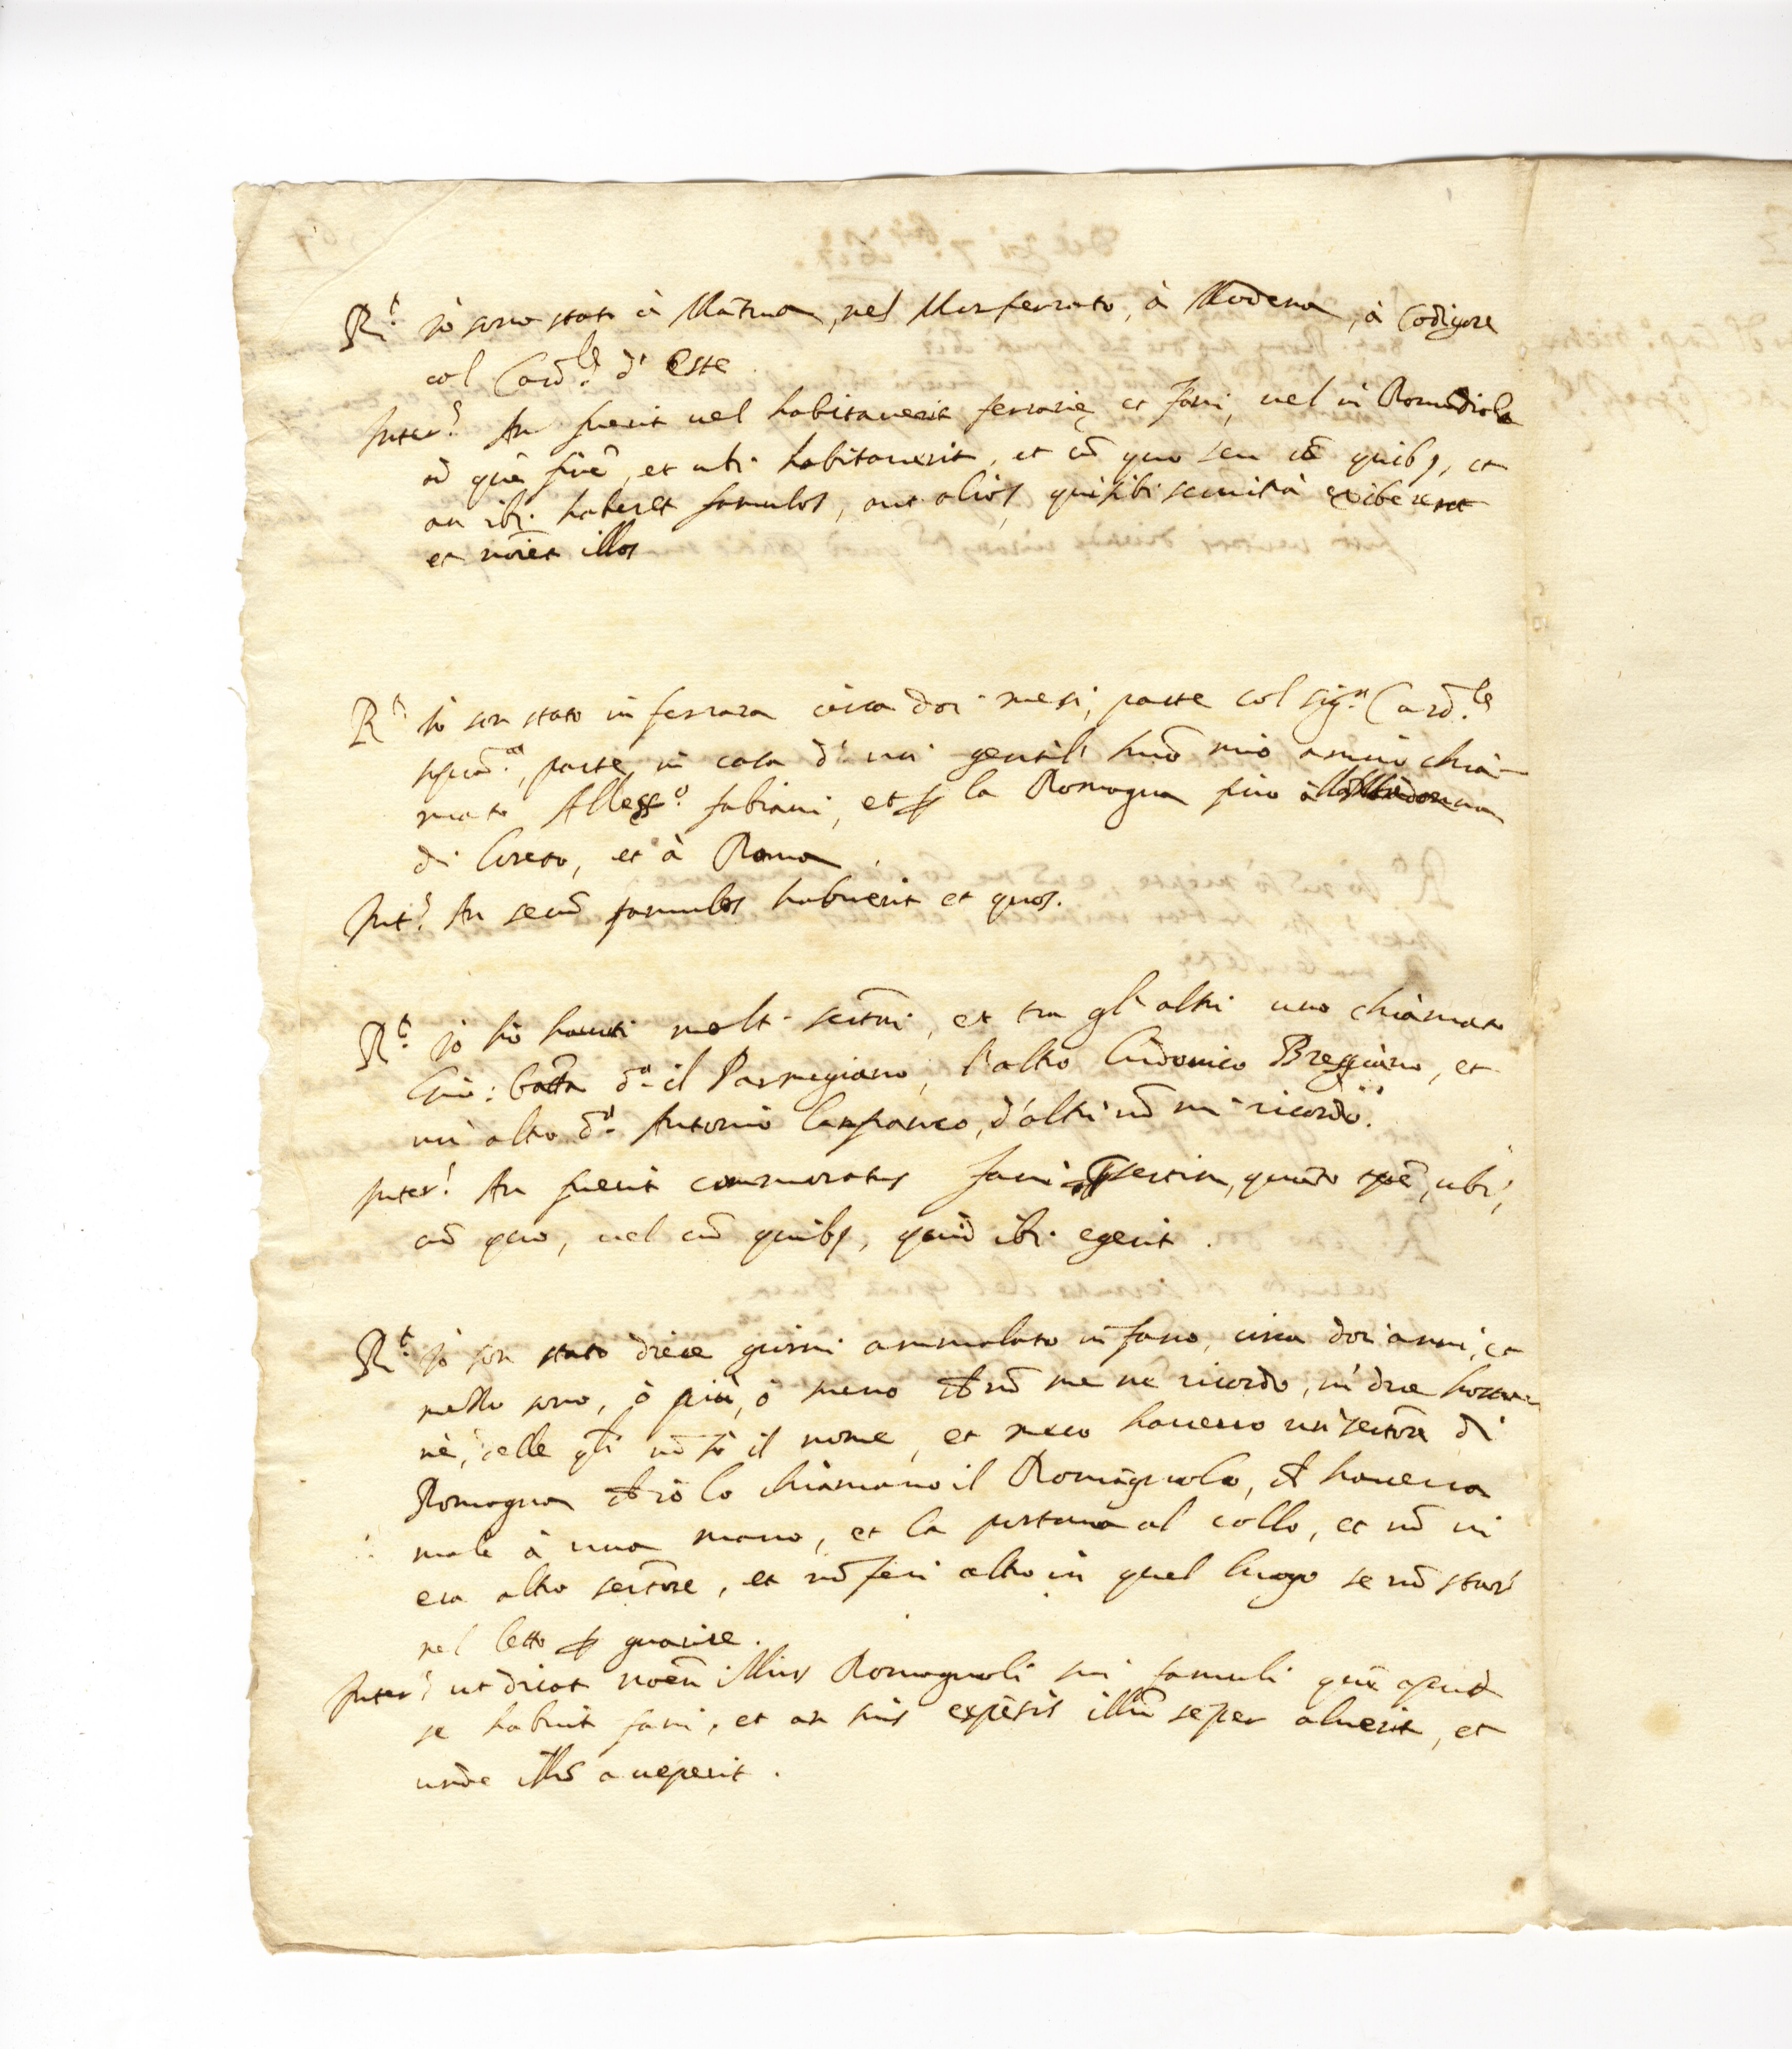 R.t Io sono stato à Mãtua, nel Monferrato, à Modena, à Codigore
col Card.le d' Este
Inter.s An fuerit uel habitauerit ferrarie et fani, uel in Romãdiola
et ubi habitauerit, et cũ quo seu cũ quibs, et
an ibi haberet famulos, aut alios, qui sibi seruitia exiberent
et noiet illos
R.t Io son stato in ferrara circa doi mesi, parte col sig.r Card.le
parte in casa d' un gentil' huõ mio amico chia-
mato Aless.o fabiani, et p la Romagna fino à
di Loreto, et à Roma
Int.s An secũ famulos habuerit et quos.
R.t Io hò hauuti molti seruri, et tra gl'altri uno chiamato
Gio: batta d.o il Parmegiano, l'altro Ludouico Bresciano, et
un altro d.o Antonio Lanfranco, d'altri nõ mi ricordo.
Inter.s An fuerit commoratus fani quãto tpe, ubi,
cũ quo, uel cũ quibs, quid ibi egerit.
R.t Io son stato diece giorni ammalato in fano, circa doi anni, et
mezzo sono, ò più, ò meno ch nõ me ne ricordo, in due
delle qli nõ sò il nome, et meco haueuo un seruore di
Romagna ch io lo chiamauo il Romagnolo, ch haueua
male à una mano, et la portaua al collo, et nõ ui
era altro seruore, et nõ feci altro in quel luogo se nõ star
nel letto p guarire.
Inter.s ut dicat noen illius Romagnoli sui famuli que apud
se habuit fani, et an suis expesis illũ seper aluerit, et
unde illũ acceperit.